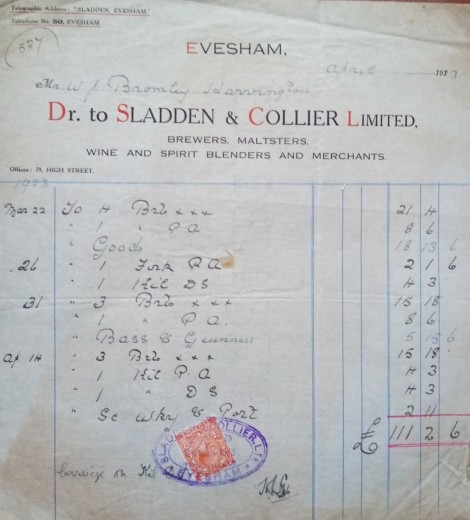 Telegraphic Address: "SLADDEN, EVESHAM."
Telephone No. 30, EVESHAM.
EVESHAM,
April 1923
Mr W J Bromley Harvington
Dr. to SLADDEN & COLLIER LIMITED,
BREWERS, MALTSTERS,
WINE AND SPIRIT BLENDERS AND MERCHANTS.
Offices: 79, HIGH STREET.
1923
Mar 22 To 4 Brls xxx 21 4
" 1 " P A 8 6
" Goods 18 13 6
26 " 1 P A 2 1 6
" 1 Kil D S 4 3
31 " 3 Brls xxx 15 18
" 1 " P A. 8 6
" Bass & Guinness 5 15 6
Ap 14 " 3 Brls xxx 15 18
" 1 Kil P A 4 3
" 1 " D S 4 3
" Wky & Port 2 11
£ 111 2 6
SLADDEN & COLLIER, LTD
EVESHAM
on